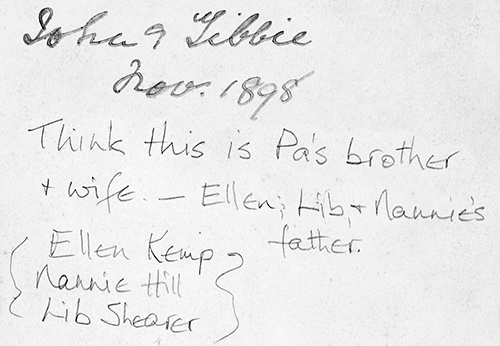 John & Tibbie
Nov. 1898
Think this is Pa's brother
+ wife. — Ellen, Lib, + Nannie's
father.
{ Ellen Kemp
Nannie Hill
Lib Shearer }